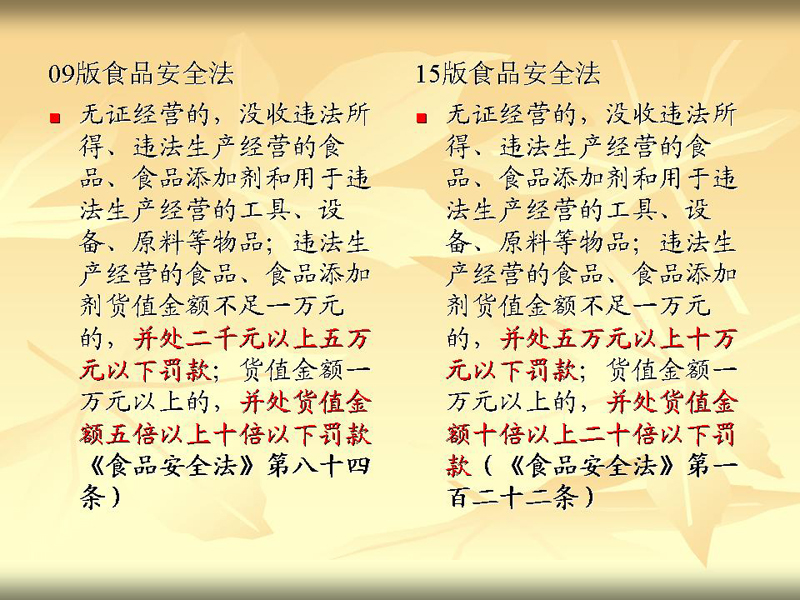 09版食品安全法
无证经营的，没收违法所
得、违法生产经营的食
品、食品添加剂和用于违
法生产经营的工具、设
备、原料等物品；违法生
产经营的食品、食品添加
剂货值金额不足一万元
的，并处二千元以上五万
元以下罚款；货值金额一
万元以上的，并处货值金
额五倍以上十倍以下罚款
《食品安全法》第八十四
条）
15版食品安全法
无证经营的，没收违法所
得、违法生产经营的食
品、食品添加剂和用于违
法生产经营的工具、设
备、原料等物品；违法生
产经营的食品、食品添加
剂货值金额不足一万元
的，并处五万元以上十万
元以下罚款；货值金额一
万元以上的，并处货值金
额十倍以上二十倍以下罚
款（《食品安全法》第一
百二十二条）